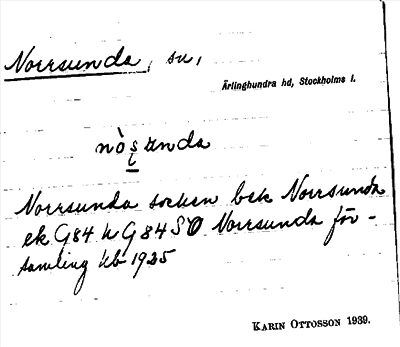 Norrsunda, sn,
Ärlinghundra hd, Stockholms l.
nòṣ̱unda
Norrsunda socken bek Norrsunda
ek G84 k G84SO Norrsunda för-
samling kb 1935
KARIN OTTOSSON 1939.